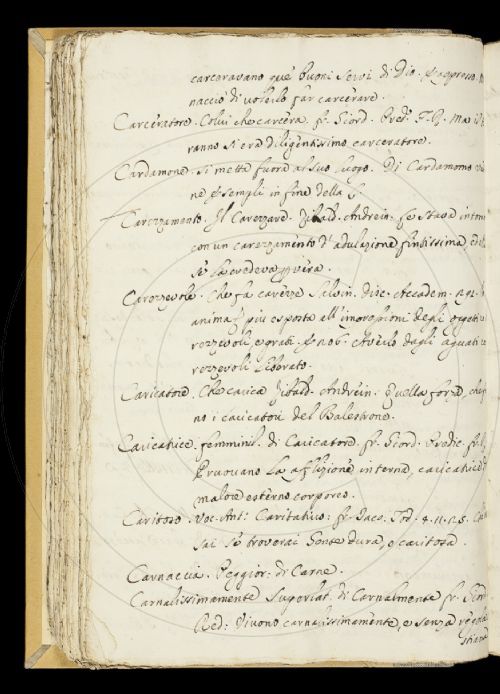 carceravano que' buoni servi di Dio. E appresso.
nacciò di volerlo far carcerare.
Carceratore. Colui che carcera. fr. Giord. Pred. I. Ma il
ranno si era diligentissimo carceratore.
Cardamone. si mette fuora al suo luogo. Di Cardamomo
ne esempli in fine della
Carezzamento. Il Carezzare. Zibald. Andrein. se stava intorno
con un carezzamento d'adulazione fintissima, ed
se la credeva vera.
Carezzevole. Che fa carezze Salvin. disc. Accadem. 291.
anima più esposta all'impressioni degli oggetti
rezzevoli, e grati. E 206. Averlo dagli aguati
rezzevoli liberato.
Caricatore. Che carica Zibald. Andrein. Quella forza, che
no i caricatori del Balestrone.
Caricatrice. femminil. di Caricatore. fr. Giord. Predic.
Pruovano la afflizione interna, caricatrice
malore esterno corporeo.
Caritoso. Voc. Ant: Caritativo: fr. Jaco. Tod. 4. 11. 25.
sai se troverai Gente dura, e caritosa.
Carnaccia. Peggior: di Carne.
Carnalissimamente Superlat. di Carnalmente fr. Gior
Red: Vivono carnalissimamente, e senza regola
stiana